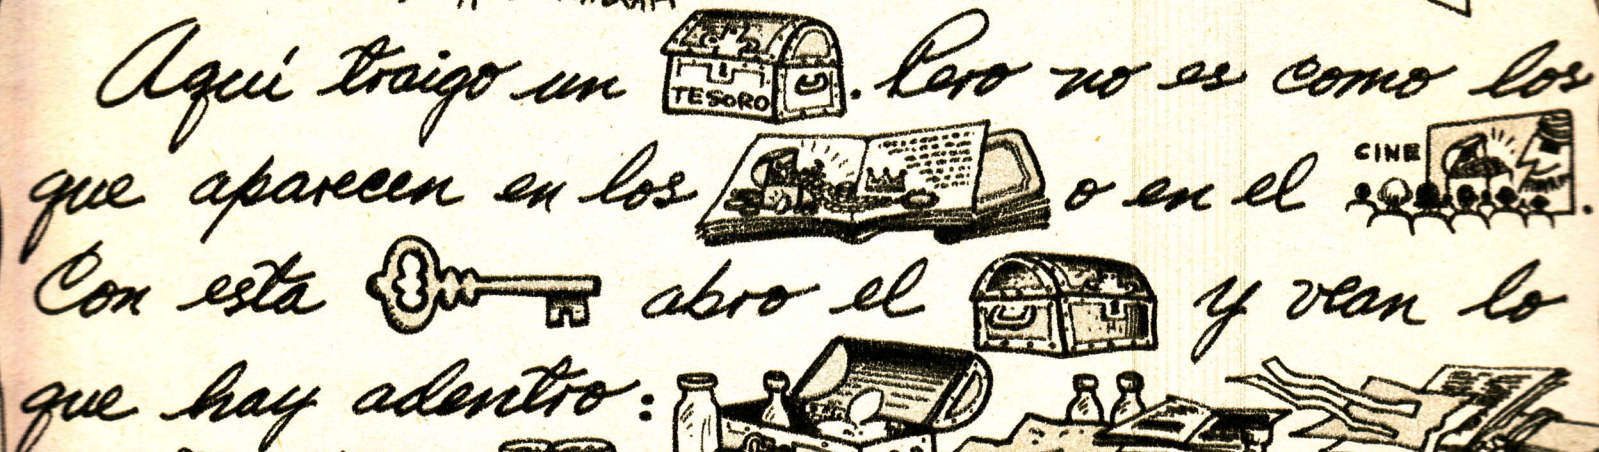 Aquí traigo un TESORO. Pero no es como los
que aparecen en los o en el CINE.
Con esta abro el y vean lo
que hay adentro: